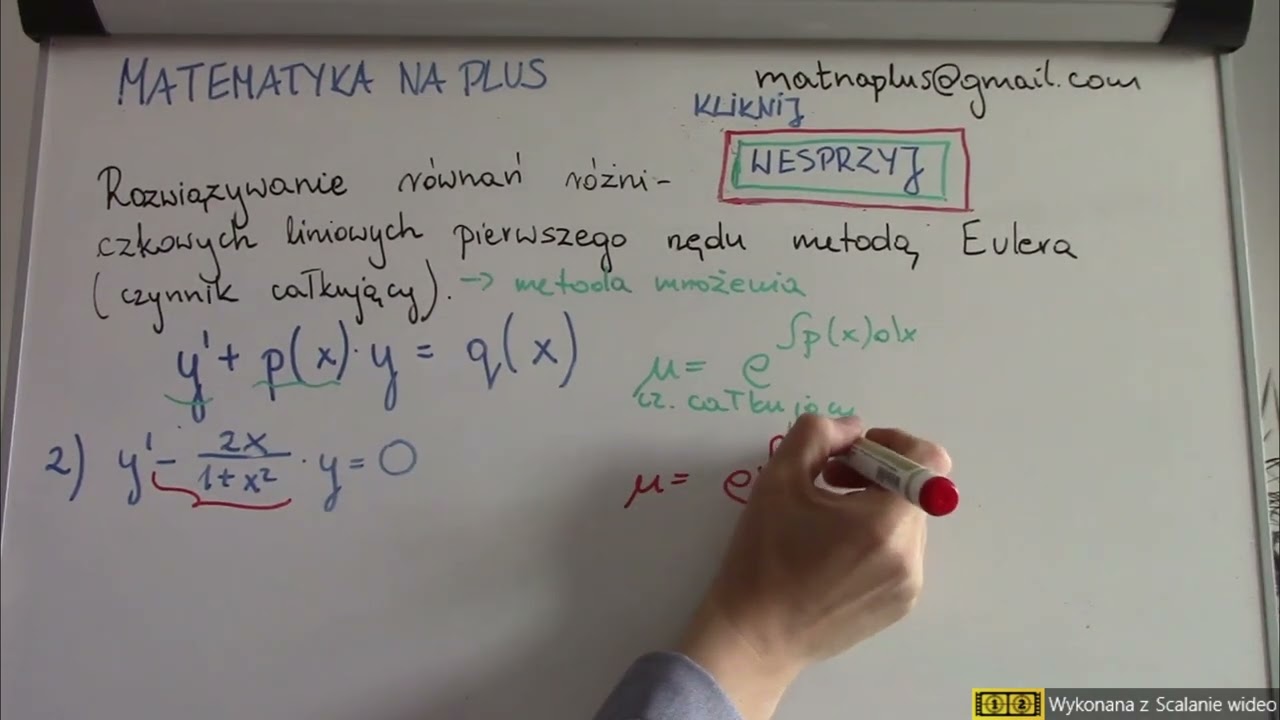 MATEMATYKA NA PLUS
matnaplus@gmail.com
KLIKNIJ
WESPRZYJ
Rozwiązywanie równań różni-
czkowych liniowych pierwszego rzędu metodą Eulera
(czynnik całkujący). → metoda mrożenia
y' + p(x)·y = q(x)
μ = e^∫p(x)dx
cz. całkujący
2) y' - 2x/(1+x²) · y = 0
μ = e
Wykonana z Scalanie wideo